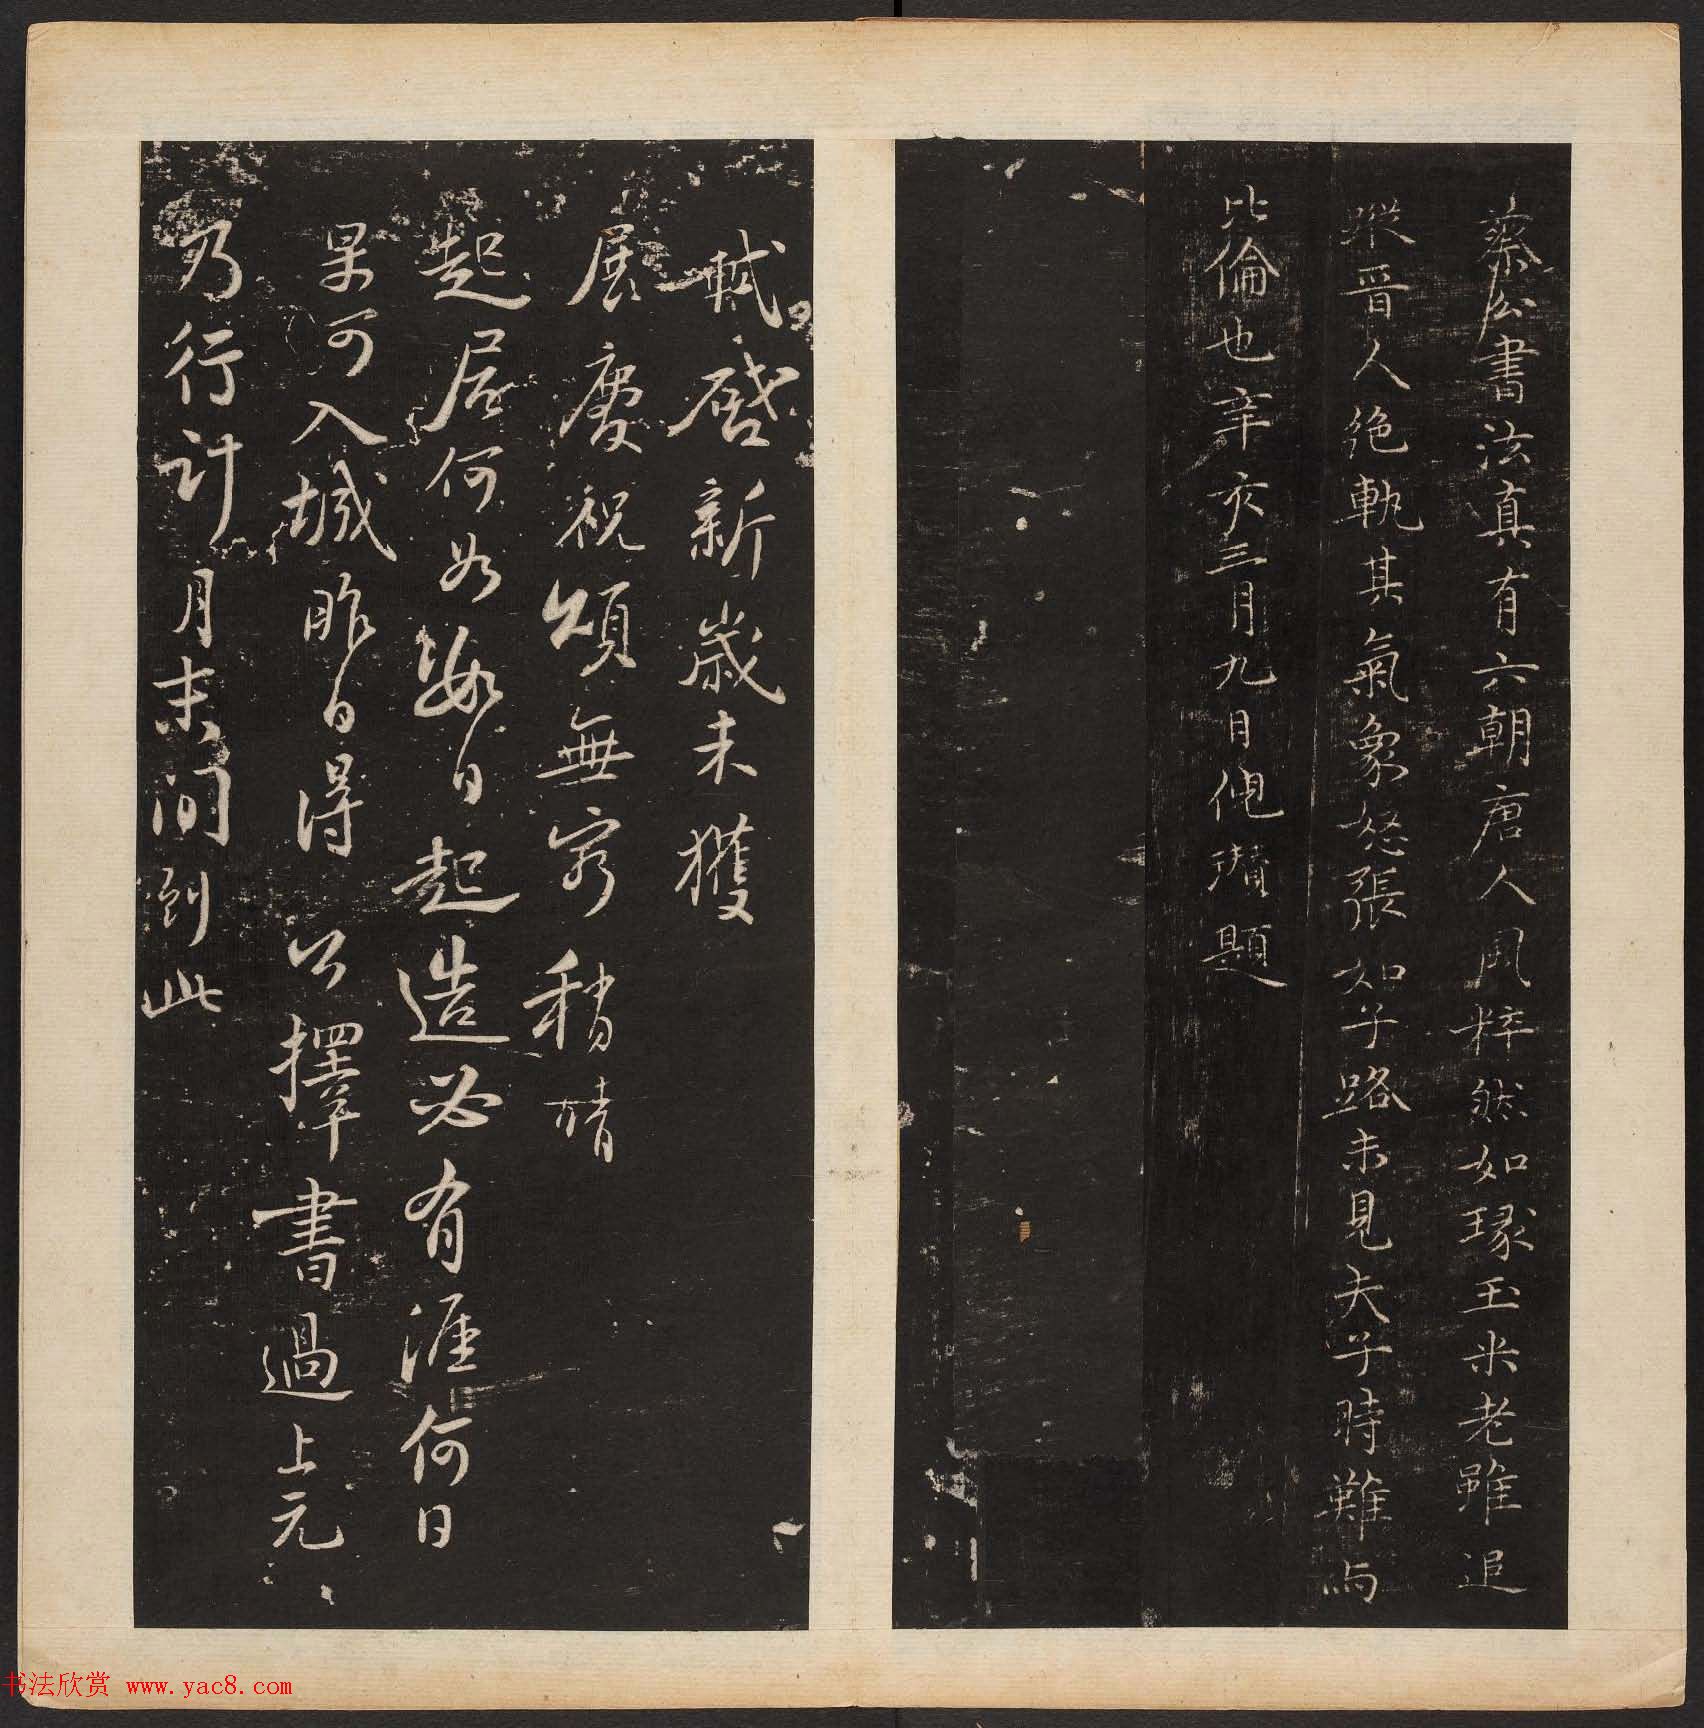 蔡公書法真有六朝唐人風粹然如琢玉米老雖追
蹤晉人絶軌其氣象怒張如子路未見夫子時難與
比倫也辛亥三月九日倪瓚題
軾啓新歲未獲
展慶祝頌無窮稍晴
起居何如數日起造必有涯何日
果可入城昨日得公擇書過上元
乃行計月末間到此
书法欣赏 www.yac8.com